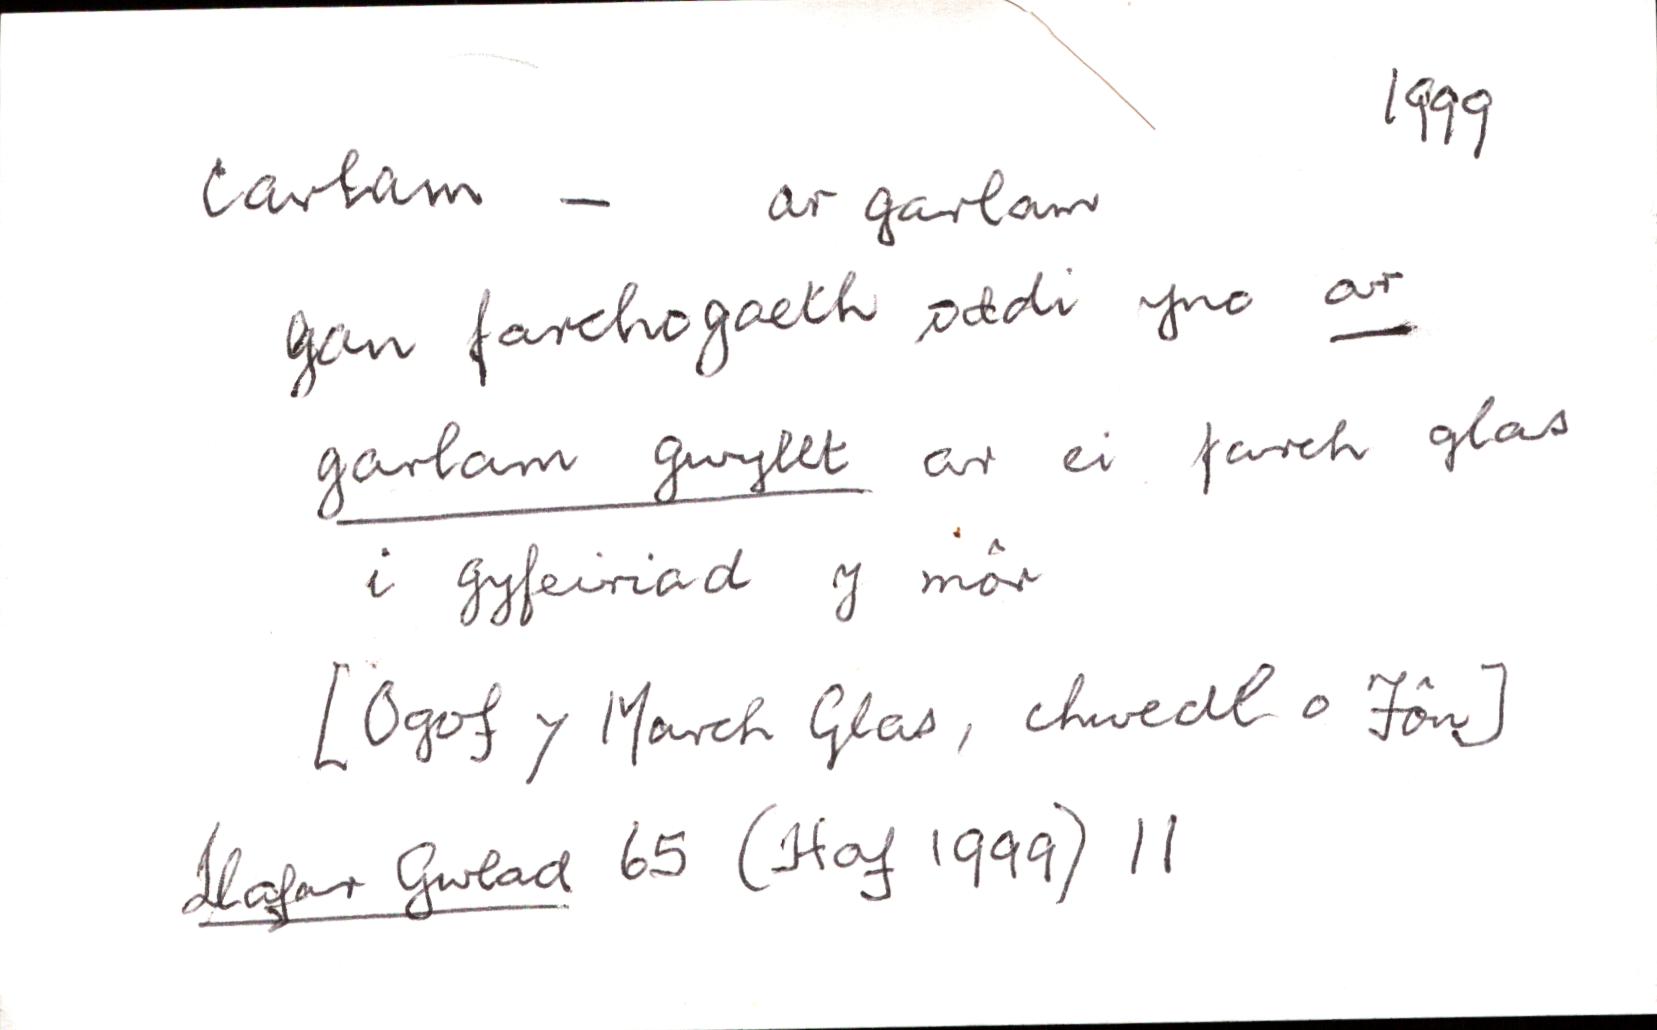 1999
carlam — ar garlam
gan farchogaeth oddi yno ar
garlam gwyllt ar ei farch glas
i gyfeiriad y môr
[Ogof y March Glas, chwedl o Fôn]
Llafar Gwlad 65 (Haf 1999) 11